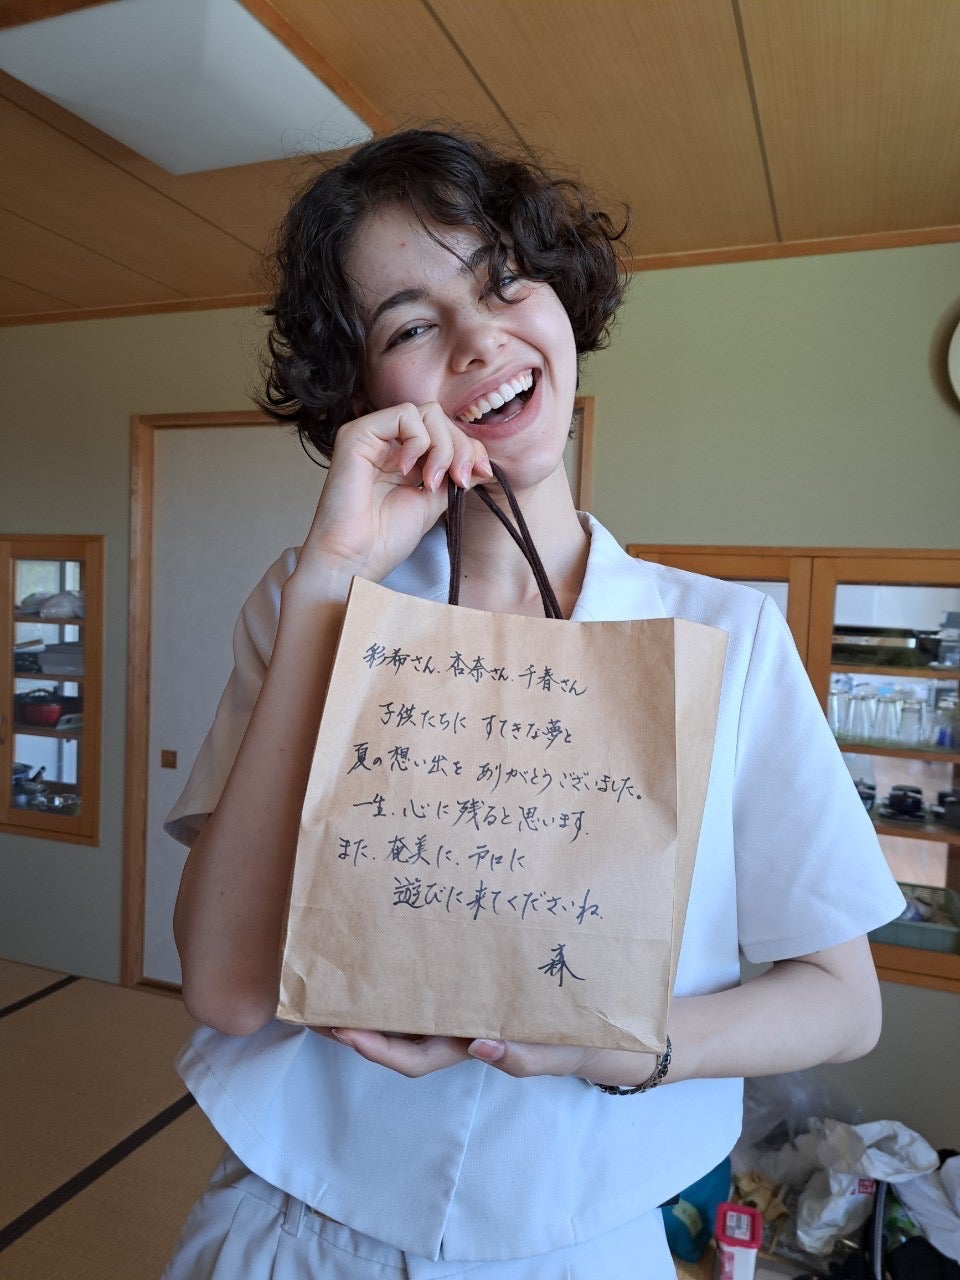 彩希さん、杏奈さん、千春さん
子供たちに すてきな夢と
夏の想い出を ありがとうございました。
一生、心に残ると思います。
また、奄美に、戸口に
遊びに来てくださいね。
森